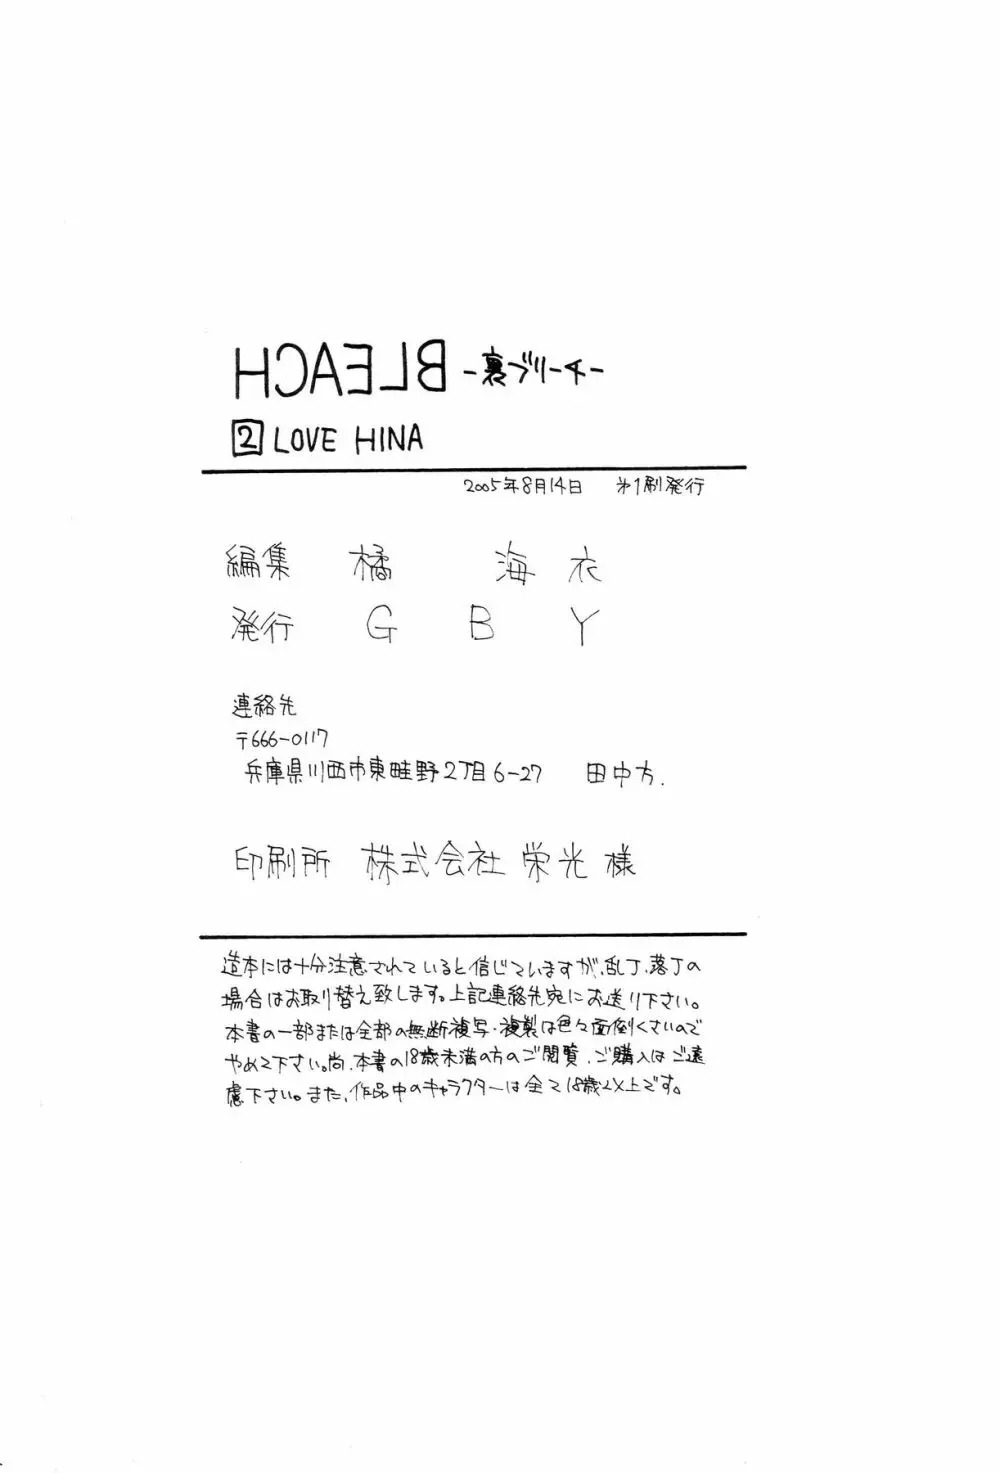 BLEACH -裏ブリーチ-
2 LOVE HINA
2005年8月14日 第1刷発行
編集 橘 海衣
発行 G B Y
連絡先
〒666-0117
兵庫県川西市東畦野2丁目6-27 田中方.
印刷所 株式会社 栄光 様
造本には十分注意されていると信じていますが、乱丁、落丁の
場合はお取り替え致します。上記連絡先宛にお送り下さい。
本書の一部または全部の無断複写・複製は色々面倒くさいので
やめて下さい。尚、本書の18歳未満の方のご閲覧、ご購入はご遠
慮下さい。また、作品中のキャラクターは全て18歳以上です。